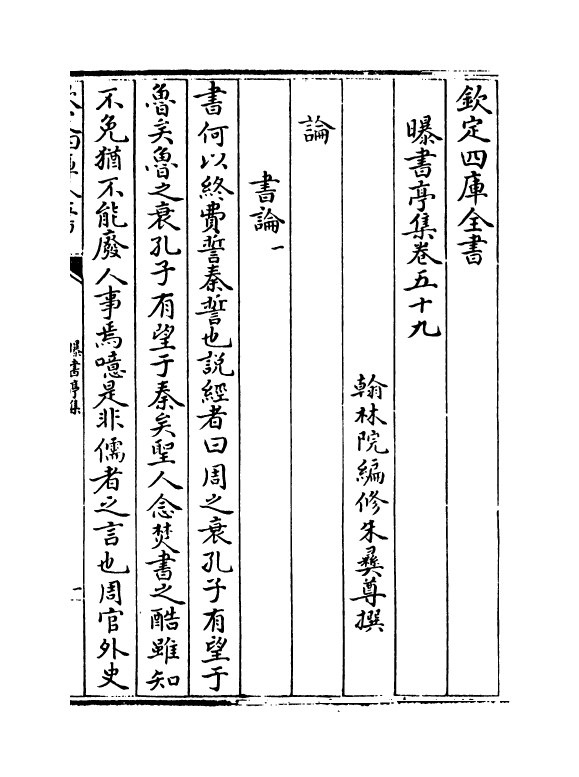 欽定四庫全書
曝書亭集卷五十九
翰林院編修朱彝尊撰
論
書論一
書何以終費誓秦誓也説經者曰周之衰孔子有望于
魯矣魯之衰孔子有望于秦矣聖人念焚書之酷雖知
不免猶不能廢人事焉噫是非儒者之言也周官外史
曝書亭集
一